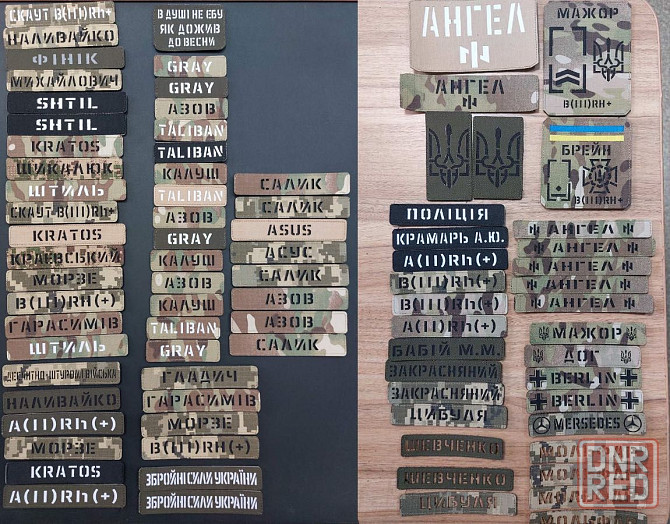 СКАУТ B(III)Rh+
НАЛИВАЙКО
ФІНІК
МИХАЙЛОВИЧ
SHTIL
SHTIL
KRATOS
ШИКАЛЮК
ШТИЛЬ
СКАУТ B(III)Rh+
KRATOS
КРАЕВСЬКИЙ
МОРЗЕ
B(III)RH(+)
ГАРАСИМІВ
ШТИЛЬ
ДЕСАНТНО-ШТУРМОВІ ВІЙСЬКА
НАЛИВАЙКО
A(II)Rh(+)
МОРЗЕ
KRATOS
A(II)Rh(+)
В ДУШІ НЕ ЄБУ
ЯК ДОЖИВ
ДО ВЕСНИ
GRAY
GRAY
АЗОВ
TALIBAN
TALIBAN
КАЛУШ
TALIBAN
АЗОВ
GRAY
КАЛУШ
АЗОВ
КАЛУШ
TALIBAN
GRAY
ГЛАДИЧ
ГАРАСИМІВ
МОРЗЕ
B(III)RH(+)
ЗБРОЙНІ СИЛИ УКРАЇНИ
ЗБРОЙНІ СИЛИ УКРАЇНИ
САЛИК
САЛИК
ASUS
АСУС
САЛИК
АЗОВ
АЗОВ
САЛИК
АНГЕЛ
АНГЕЛ
МАЖОР
B(III)RH+
БРЕЙН
B(III)RH+
ПОЛІЦІЯ
КРАМАРЬ А.Ю.
A(II)Rh(+)
B(III)Rh(+)
B(III)Rh(+)
A(II)Rh(+)
БАБІЙ М.М.
ЗАКРАСНЯНИЙ
ЗАКРАСНЯНИЙ
ЦИБУЛЯ
ШЕВЧЕНКО
ШЕВЧЕНКО
ЦИБУЛЯ
АНГЕЛ
АНГЕЛ
АНГЕЛ
АНГЕЛ
АНГЕЛ
МАЖОР
ДОГ
BERLIN
BERLIN
MERSEDES
DNR
RED